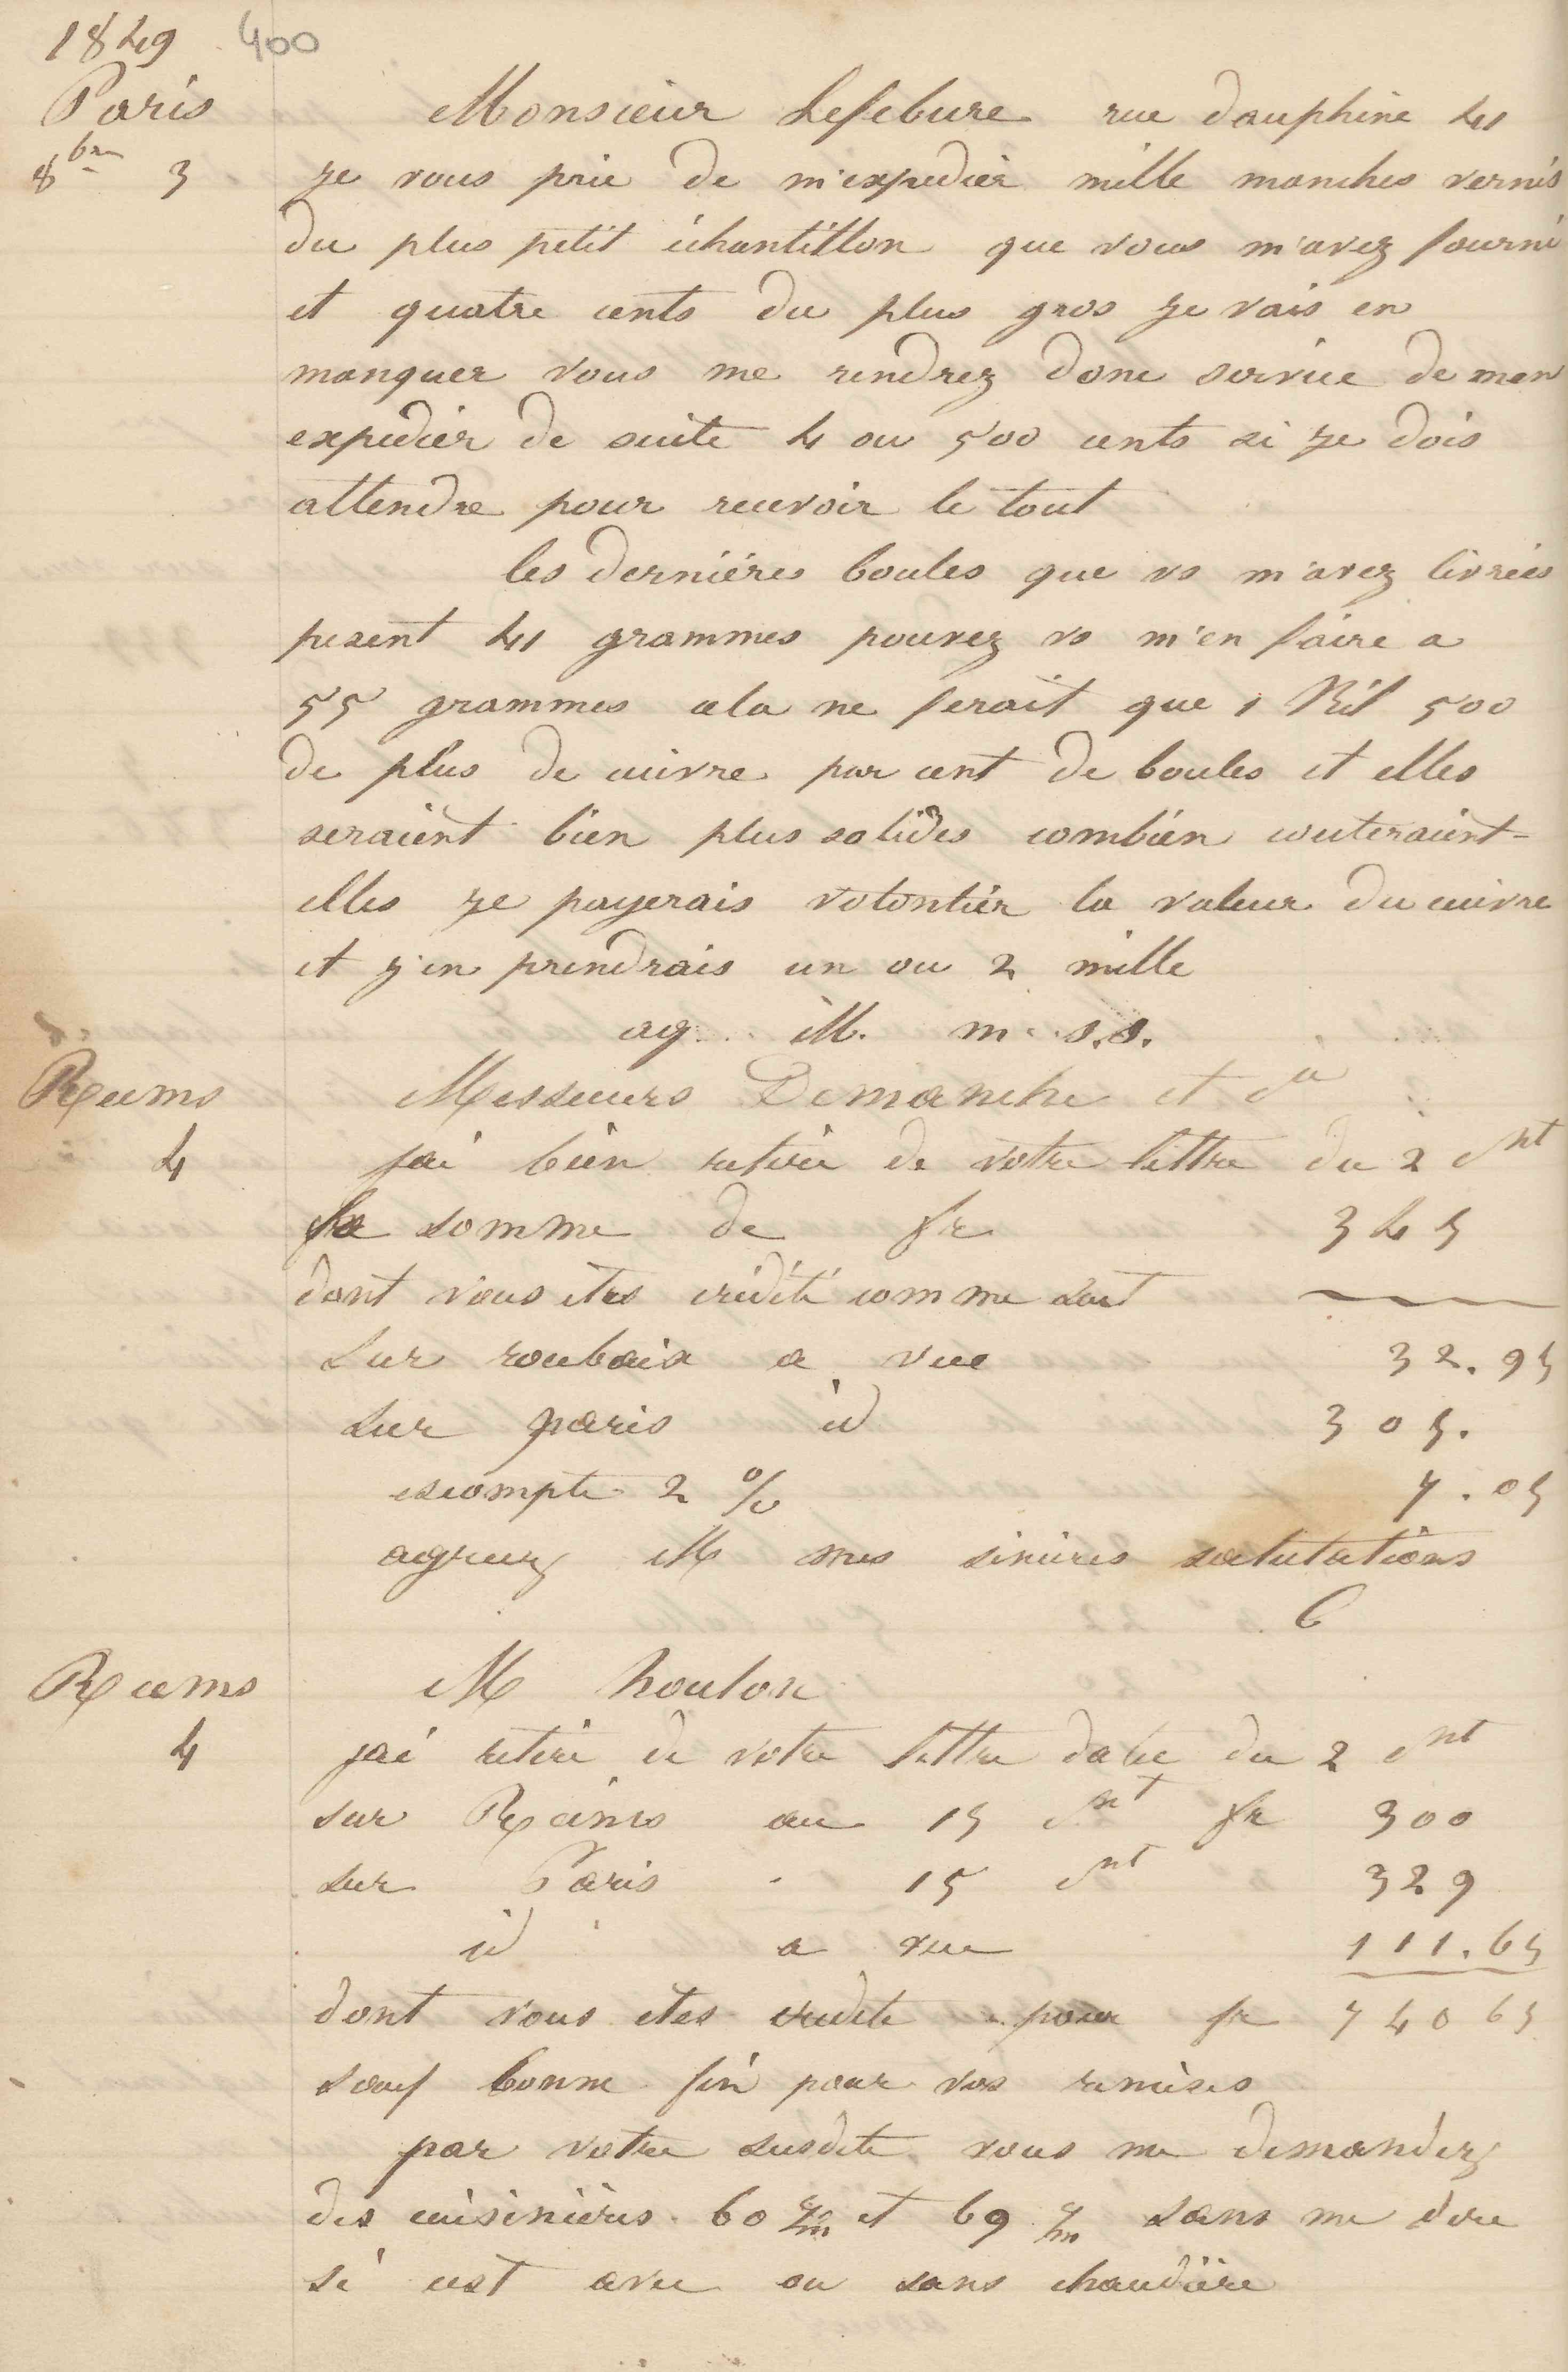 1849 400
Paris
8bre 3
Monsieur Lefebure rue dauphine 41
je vous prie de m'expedier mille manches vernis
du plus petit échantillon que vous m'avez fourni
et quatre cents du plus gros je vais en
manquer vous me rendrez donc service de men
expedier de suite 4 ou 500 cents si je dois
attendre pour recevoir le tout
les dernières boules que vs m'avez livrées
pesent 41 grammes pouvez vs m'en faire a
55 grammes cela ne ferait que 1 Kil 500
de plus de cuivre par cent de boules et elles
seraient bien plus solides combien couteraient-
elles je payerais volontier la valeur du cuivre
et j'en prendrais un ou 2 mille
ag M. m s.s.
Reims
4
Messieurs Demanche et
jai bien retiré de votre lettre du 2 ct
la somme de fr 345
dont vous êtes crédité comme suit
Sur roubaix a vue 32.95
Sur paris id 305.
escompte 2 % 7.05
agreez M mes sincères salutations
C
Reims
4
M houlon
jai retiré de votre lettre datée du 2 ct
sur Reims au 15 ct fr 300
sur Paris - 15 ct 329
id a vue 111.65
dont vous etes credite pour fr 740 65
sauf bonne fin pour vos remises
par votre susdite vous me demandez
des cuisinières 60 c/m et 69 c/m sans me dire
si cest avec ou sans chaudière